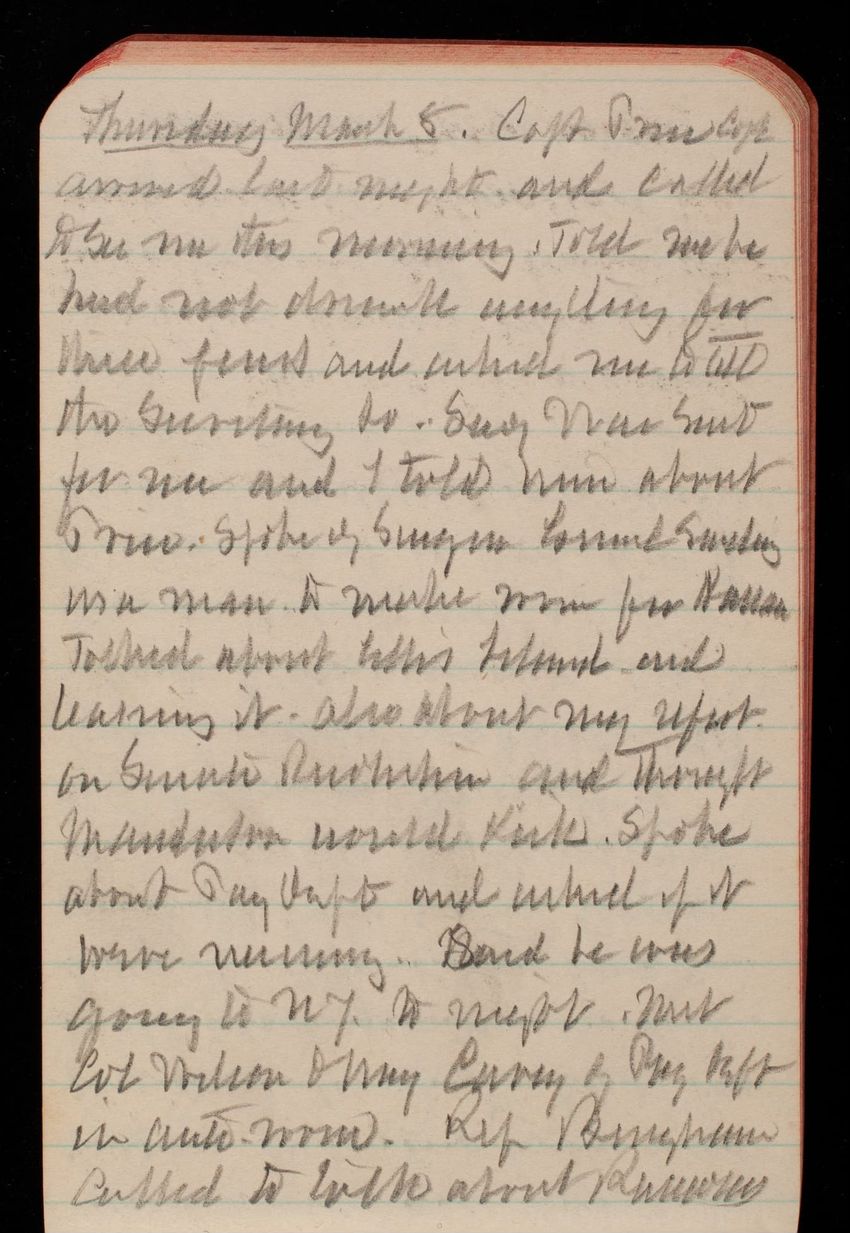 Thursday March 8. Capt Price
arrived last night and called
to see me this morning. Told me he
had not drank anything for
three years and asked me to tell
the Secretary so. Secy War sent
for me and I told him about
Price. Spoke of Surgeon
as a man to make room for
Talked about Ellis Island and
leasing it. Also about my report
on Senate Resolution and thought
Manderson would kick. Spoke
about Pay Dept and asked if it
were running. Said he was
going to NY. to night. Met
Col Wilson & Maj Carey of Pay Dept
in ante-room. Rep Bingham
called to talk about